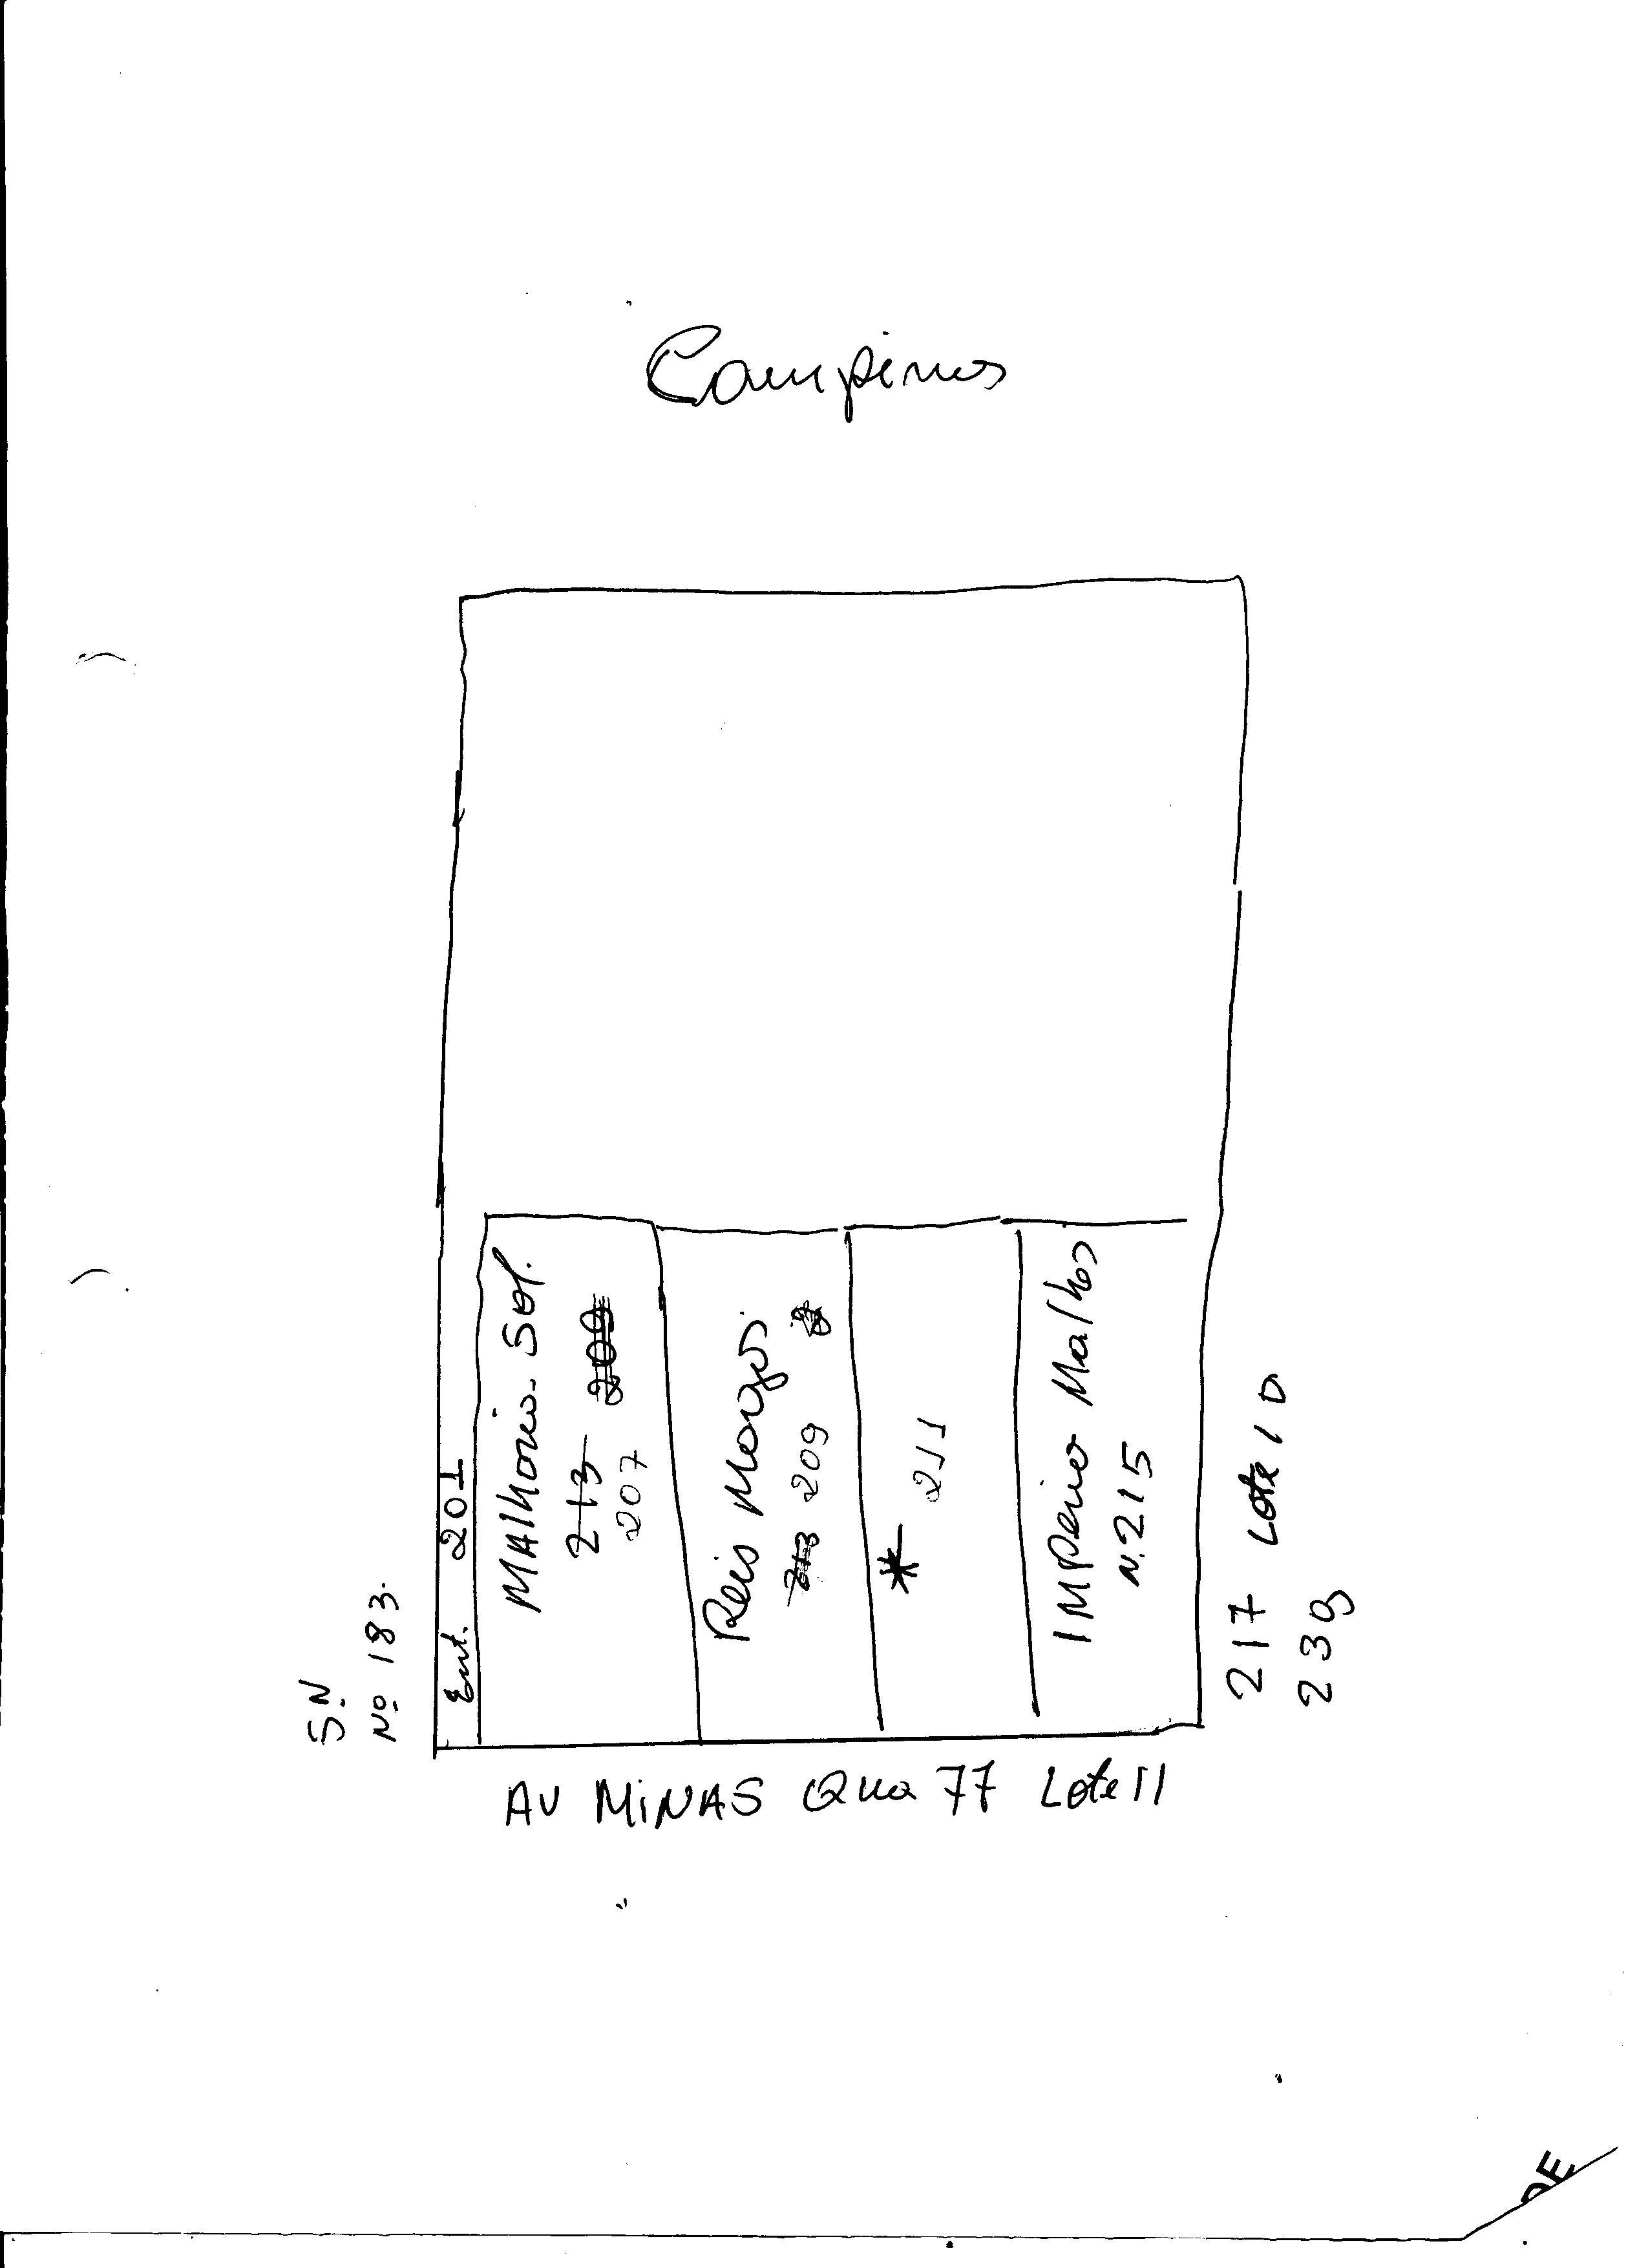 Campinas
S.N
Nº 183.
Ent. 201
MAlharia. Sol.
213 209
207
Reis
213 209
* 211
IMPerio Malhas
N. 215
217 Lote 10
239
AV MiNAS Qua 77 Lote 11
DE